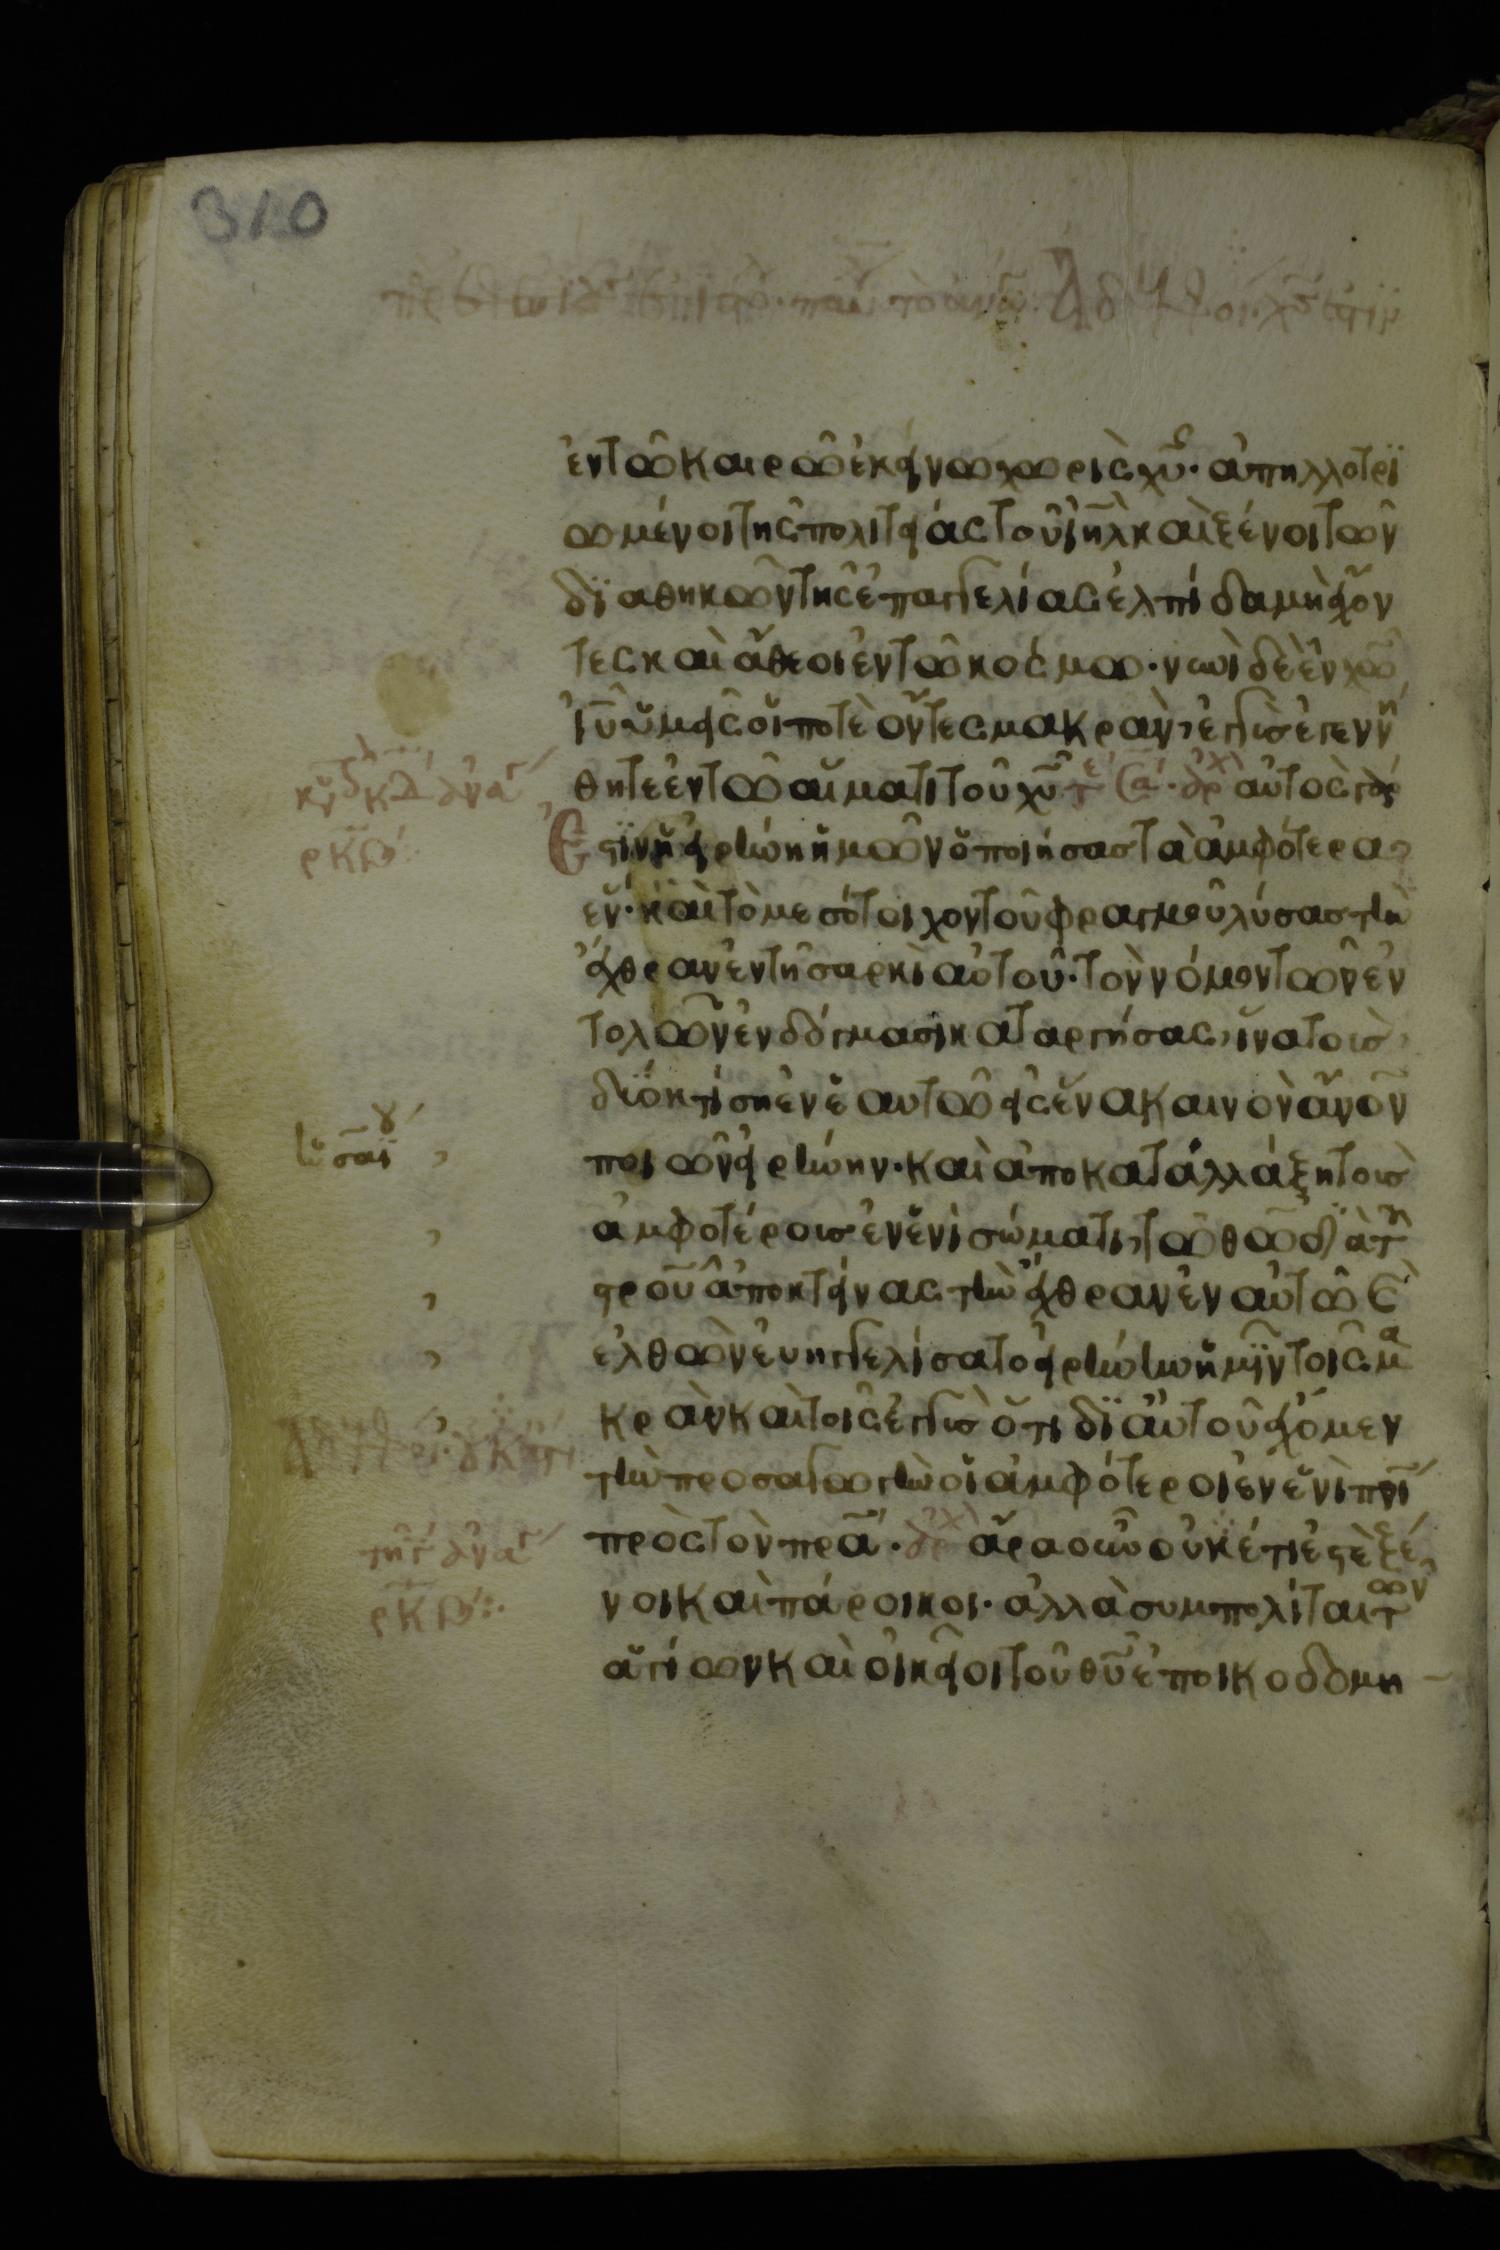 310
ἐν τῶ καιρῶ ἐκείνω χωρὶς χυ· ἀπηλλοτρϊ
ωμένοι τῆς πολιτείας τοῦ ιηλ καὶ ξένοι τῶν
δϊαθηκῶν τῆς ἐπαγγελίας ἐλπίδα μὴ ἔχον
τες καὶ ἄθεοι ἐν τῶ κόσμω· νυνὶ δὲ ἐν χω
ιυ ὑμεῖς οἵ ποτὲ ὄντες μακρὰν, ἐγγὺς ἐγενή
θητε ἐν τῶ αἵματι τοῦ χυ αὐτὸς γάρ
ἐστϊν ἡ εἰρήνη ἡμῶν ὁ ποιήσας τὰ ἀμφότερα
ἕν· καὶ τὸ μεσότοιχον τοῦ φραγμοῦ λύσας τὴν
ἔχθραν ἐν τῆ σαρκὶ αὐτοῦ· τὸν νόμον τῶν ἐν
τολῶν ἐν δόγμασι καταργήσας, ἵνα τοὺς
δύο κτίση ἐν ἑαυτῶ εἰς ἕνα καινὸν ανον
ποιῶν εἰρήνην· καὶ ἀποκαταλλάξη τοὺς
ἀμφοτέρους ἐν ἑνὶ σώματι, τῶ θω δϊὰ τ
στροῦ ἀποκτείνας τὴν ἔχθραν ἐν αὐτῶ
ἐλθὼν εὐηγγελίσατο εἰρήνην ἡμῖν τοῖς μα
κρὰν καὶ τοῖς ἐγγὺς ὅτι δϊ αὐτοῦ ἔχομεν
τὴν προσαγωγὴν οἱ ἀμφότεροι ἐν ἑνὶ πνι
πρὸς τὸν πρα· ἄρα οὖν οὐκέτι ἐστὲ ξέ
νοι καὶ πάροικοι· ἀλλὰ συμπολίται τῶν
ἁγίων καὶ οἰκεῖοι τοῦ θυ ἐποικοδομη